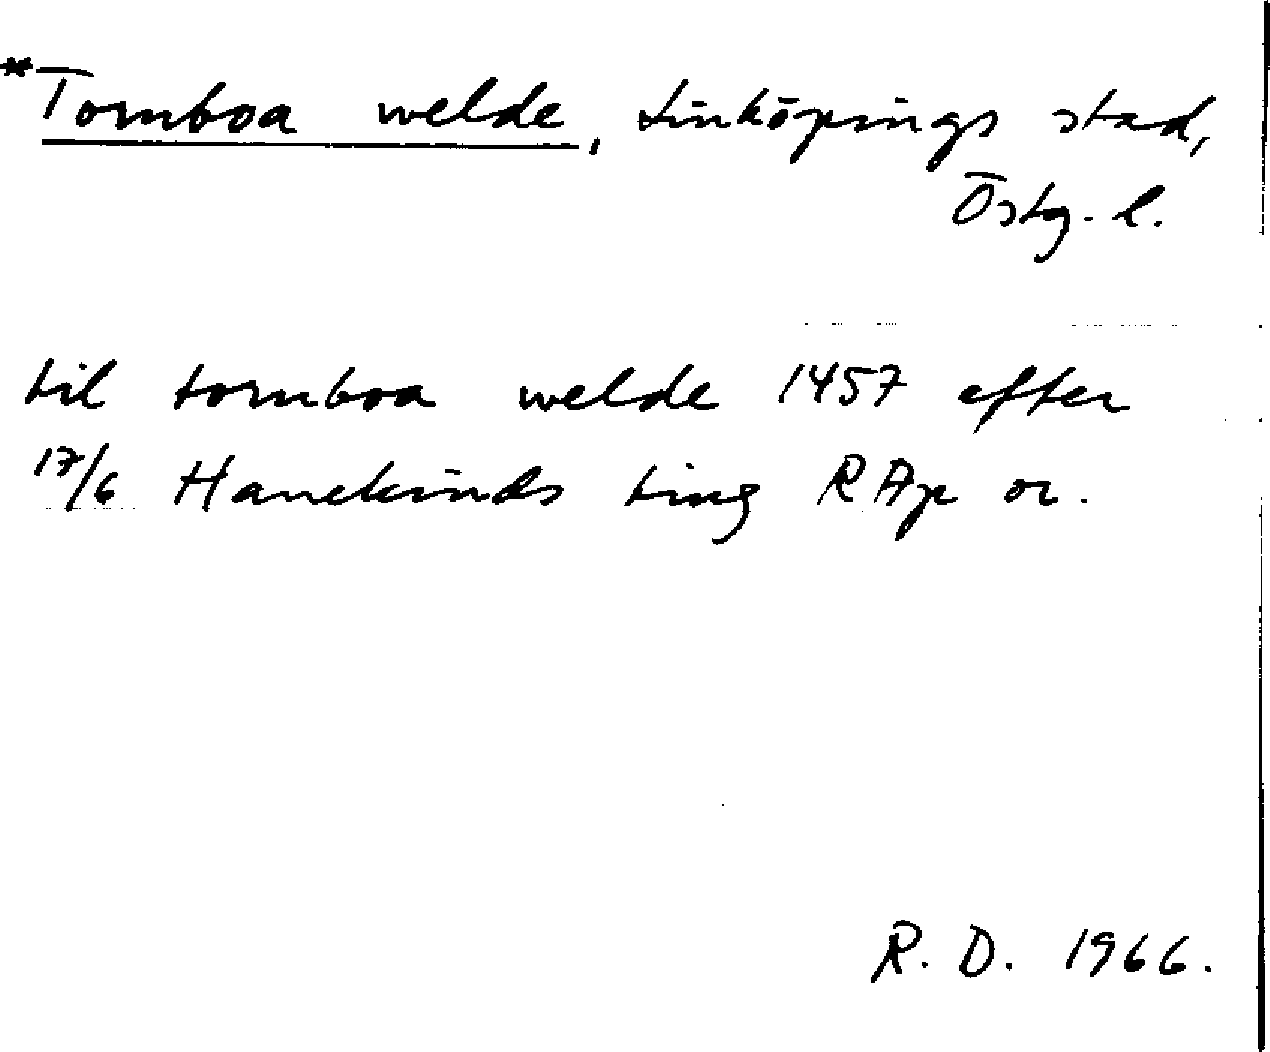 *Tornboa welde, Linköpings stad,
Östg. l.
til tornboa welde 1457 efter
17/6 Hanekinds ting RAp or.
R. D. 1966.